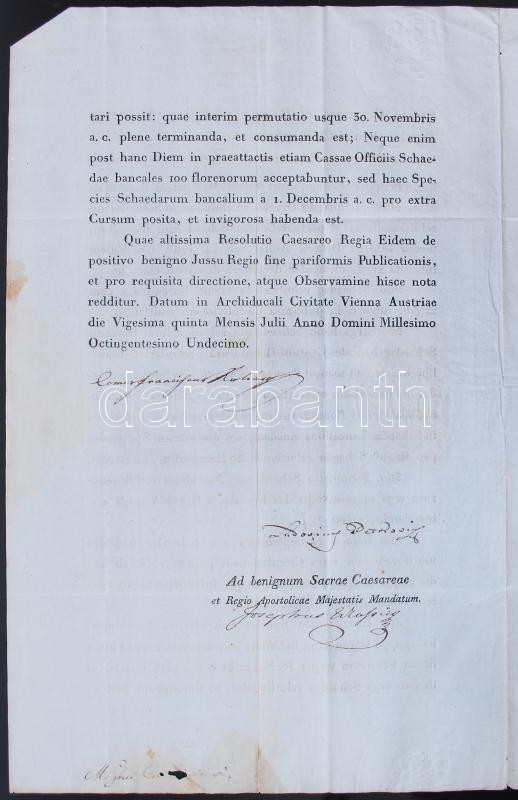 tari possit: quae interim permutatio usque 30. Novembris
a. c. plene terminanda, et consumanda est; Neque enim
post hanc Diem in praeattactis etiam Cassae Officiis Schae-
dae bancales 100 florenorum acceptabuntur, sed haec Spe-
cies Schaedarum bancalium a 1. Decembris a. c. pro extra
Cursum posita, et invigorosa habenda est.
Quae altissima Resolutio Caesareo Regia Eidem de
positivo benigno Jussu Regio fine pariformis Publicationis,
et pro requisita directione, atque Observamine hisce nota
redditur. Datum in Archiducali Civitate Vienna Austriae
die Vigesima quinta Mensis Julii Anno Domini Millesimo
Octingentesimo Undecimo.
Comes Franciscus
darabanth
Ad benignum Sacrae Caesareae
et Regio Apostolicae Majestatis Mandatum.
Josephus